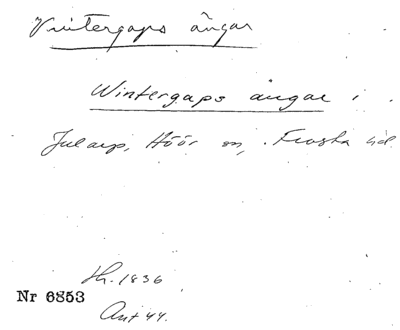 Vintergaps ängar
Wintergaps ängar i
Jularp, Höör sn, Frosta hd.
Lh. 1836
Nr 6853
Ant 44.